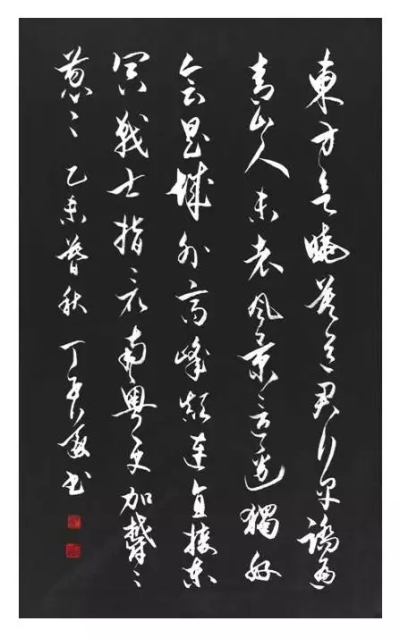 東方欲曉莫道君行早踏遍
青山人未老風景這邊獨好
會昌城外高峰顛連直接東
溟戰士指看南粵更加鬱〻
葱〻 乙未暮秋 丁 書